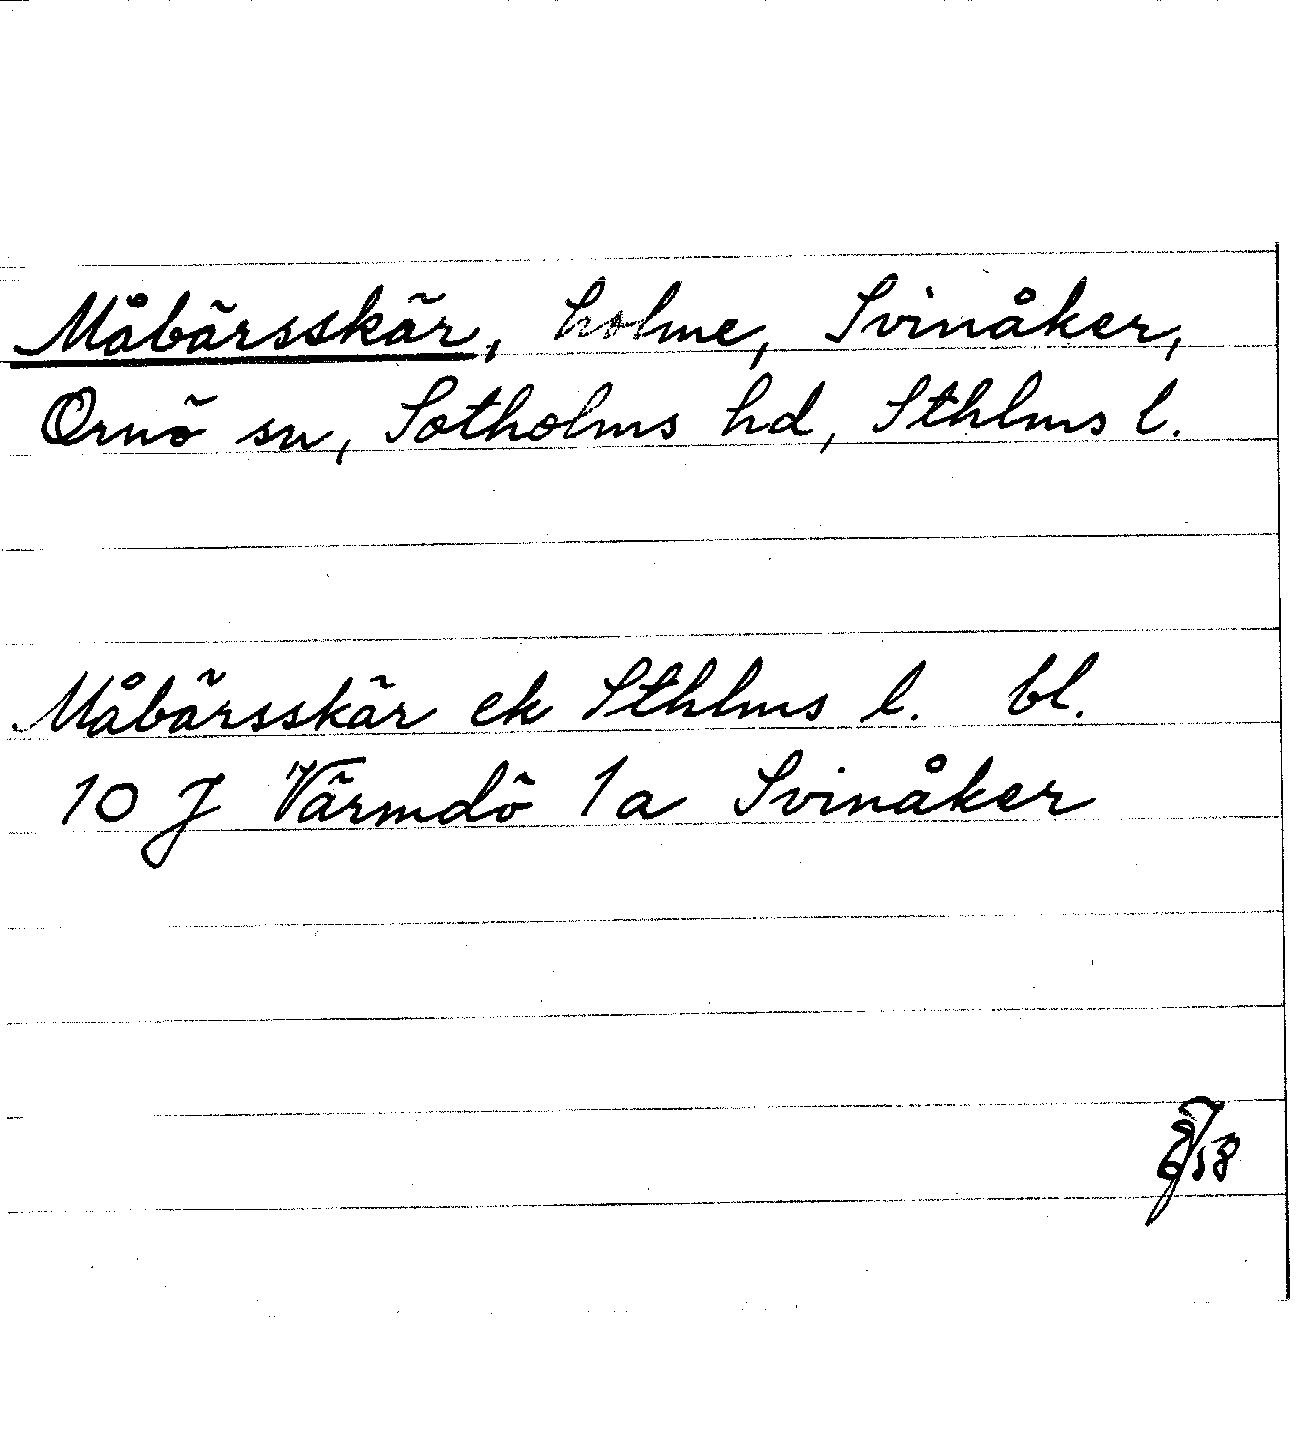 Måbärsskär, holme, Svinåker,
Ornö sn, Sotholms hd, Sthlms l.
Måbärsskär ek Sthlms l. bl.
10 J Värmdö 1a Svinåker
58